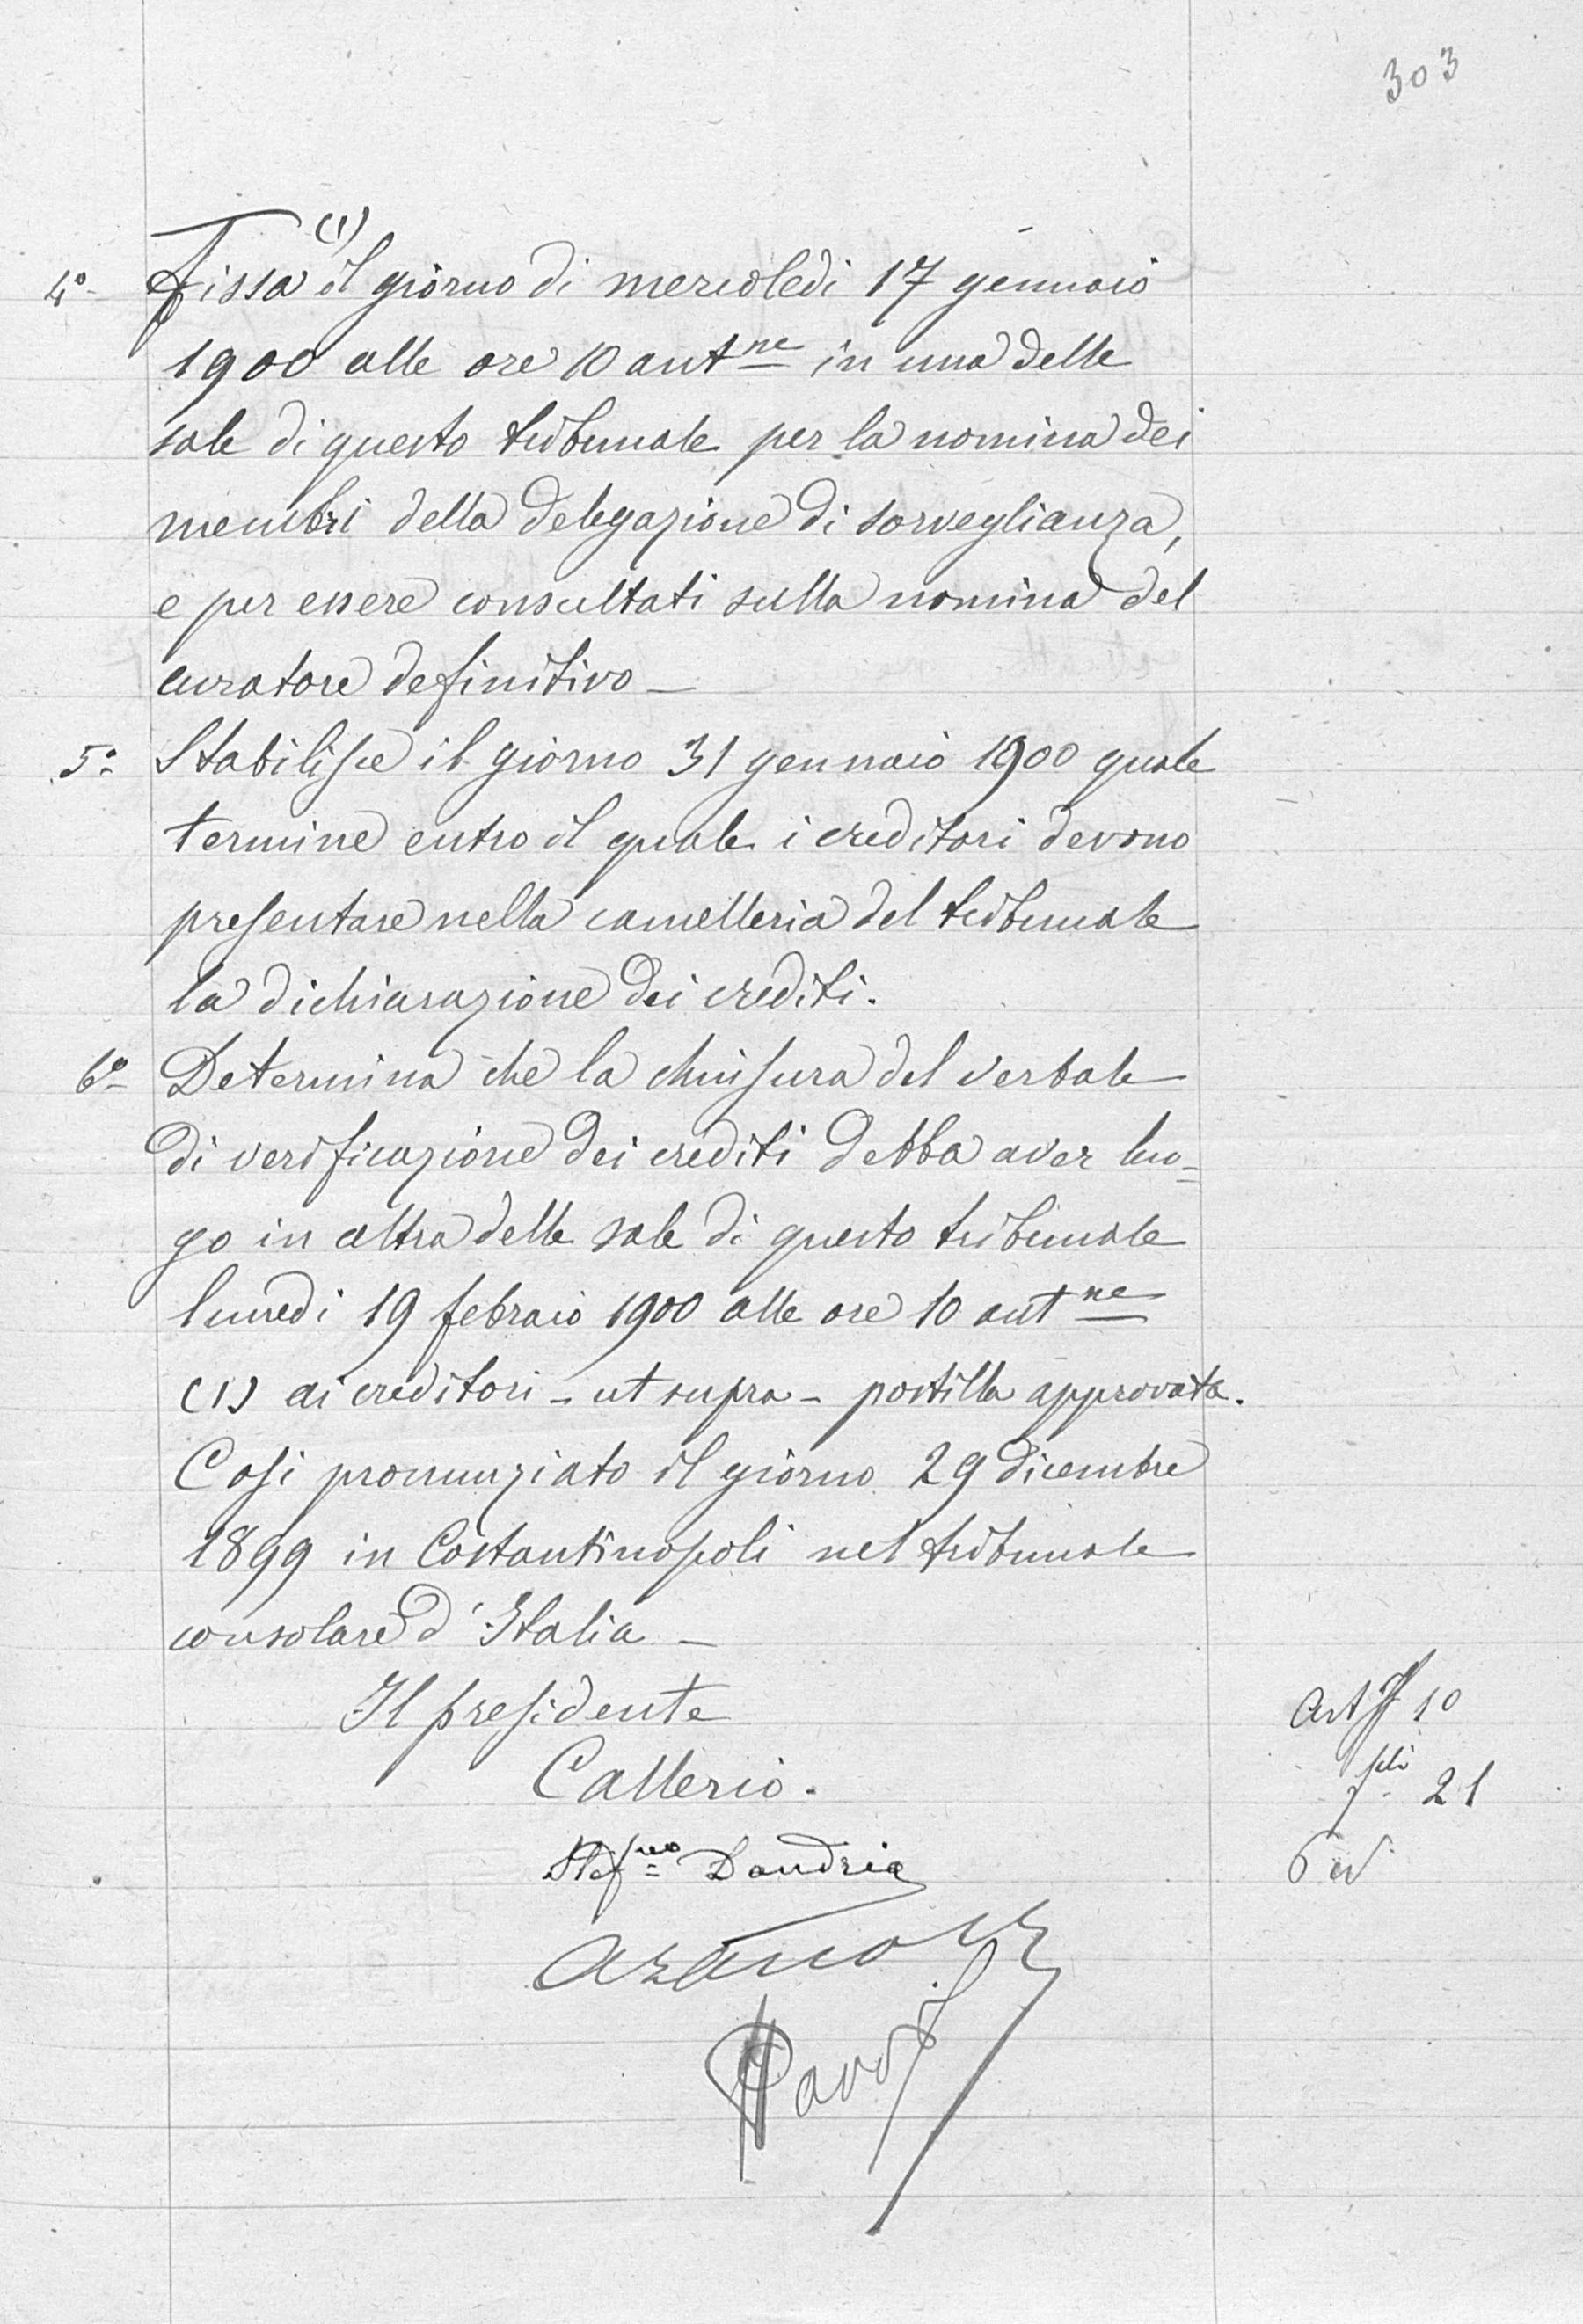 303
4º- Fissa (1) il giorno di mercoledi 17 gennaio
1900 alle ore 10 antne in una delle
sale di questo tribunale per la nomina dei
membri della delegazione di sorveglianza,
e per essere consultati sulla nomina del
curatore definitivo -
5º- Stabilisce il giorno 31 gennaio 1900 quale
termine entro il quale i creditori devono
presentare nella cancelleria del tribunale
la dichiarazione dei crediti.
6º- Determina che la chiusura del verbale
di verificazione dei crediti debba aver luo=
go in altra delle sale di questo tribunale
lunedi 19 febraio 1900 alle ore 10 antne
(1) ai creditori - ut supra - postilla approvata.
Cosi pronunziato il giorno 29 dicembre
1899 in Costantinopoli nel tribunale
consolare d'Italia -
Il presidente
Callerio.
Stefno Dandria
Art 10
21